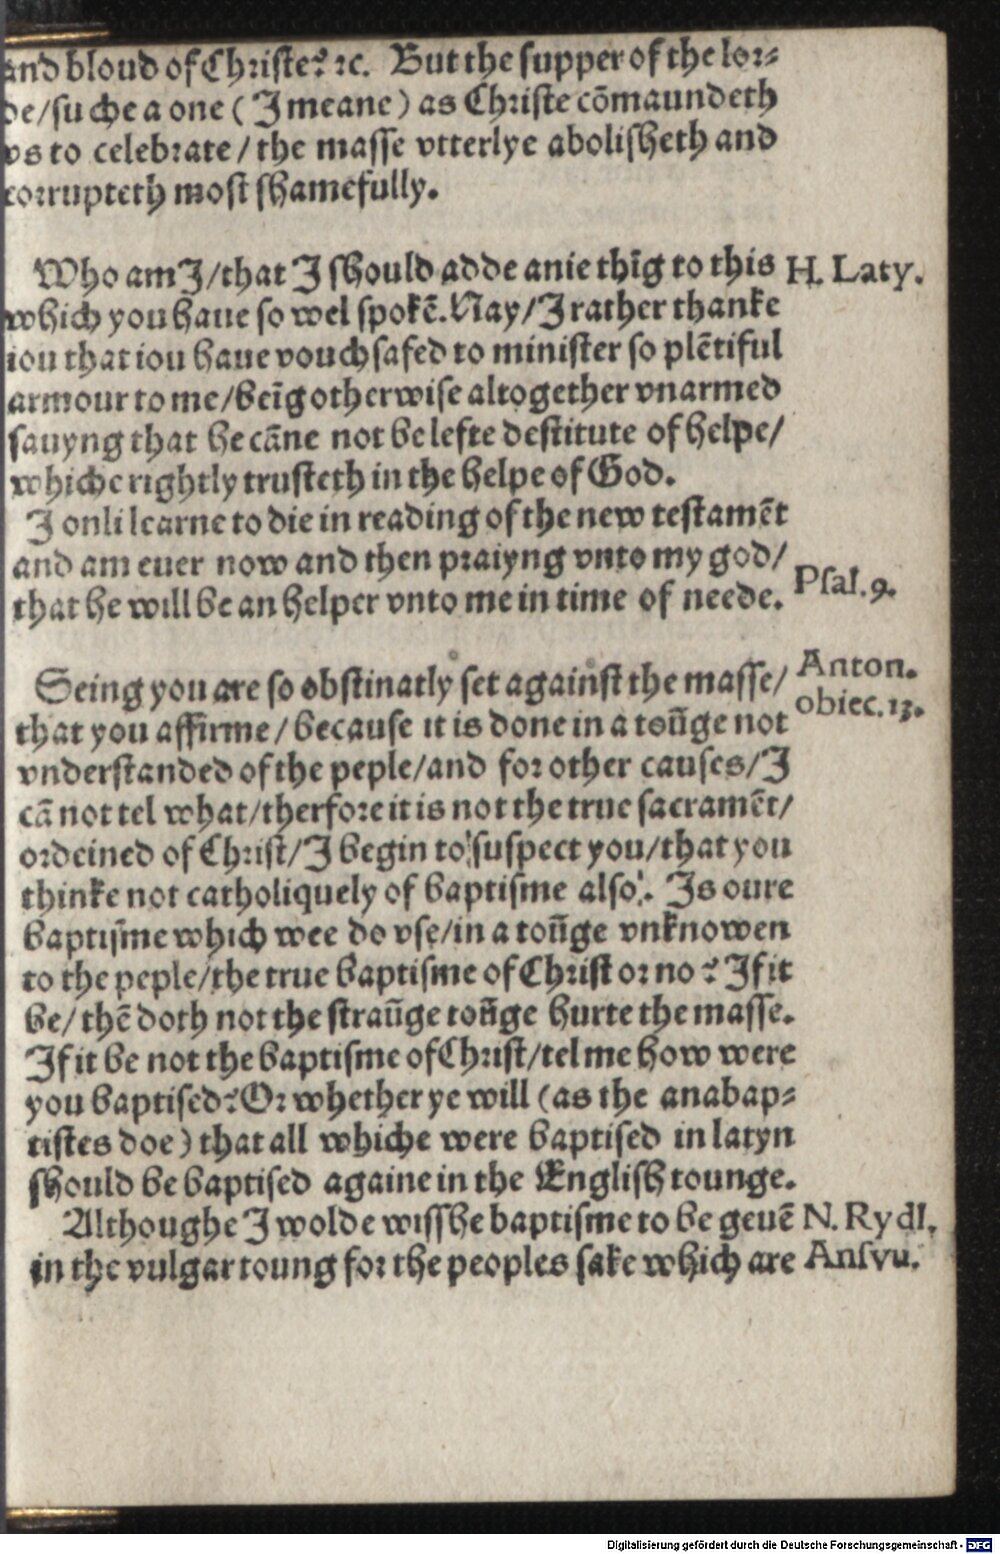 and bloud of Christe? ⁊c. But the supper of the lor⸗
de/suche a one (I meane) as Christe cōmaundeth
vs to celebrate/the masse vtterlye abolisheth and
corrupteth most shamefully.
Who am I/that I should adde anie thīg to this H. Laty.
which you haue so wel spokē. Nay/I rather thanke
iou that iou haue vouchsafed to minister so plētiful
armour to me/beīg otherwise altogether vnarmed
sauyng that he cāne not be lefte destitute of helpe/
whiche rightly trusteth in the helpe of God.
I onli learne to die in reading of the new testamēt
and am euer now and then praiyng vnto my god/
that he will be an helper vnto me in time of neede. Psal. 9.
Seing you are so obstinatly set against the masse/ Anton.
that you affirme/because it is done in a toūge not obiec. 13.
vnderstanded of the peple/and for other causes/I
cā not tel what/therfore it is not the true sacramēt/
ordeined of Christ/I begin to suspect you/that you
thinke not catholiquely of baptisme also. Is oure
baptisme which wee do vse/in a toūge vnknowen
to the peple/the true baptisme of Christ or no? If it
be/thē doth not the straūge toūge hurte the masse.
If it be not the baptisme of Christ/tel me how were
you baptised? Or whether ye will (as the anabap⸗
tistes doe) that all whiche were baptised in latyn
should be baptised againe in the English tounge.
Althoughe I wolde wisshe baptisme to be geuē N. Rydl.
in the vulgar toung for the peoples sake which are Ansvu.
Digitalisierung gefördert durch die Deutsche Forschungsgemeinschaft - DFG